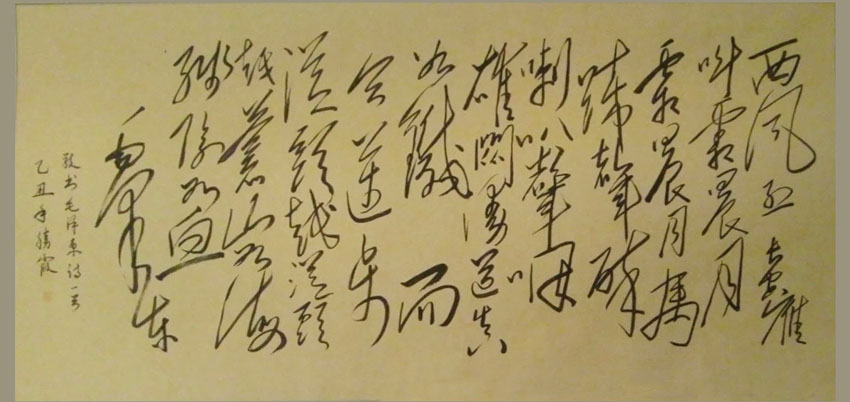 西风烈长空雁
叫霜晨月
霜晨月马
蹄声碎
喇叭声咽
雄关漫道真
如铁而
今迈步
从头越从头
越苍山如海
残阳如血
毛泽东
敬书毛泽东词一首
乙丑年 霞